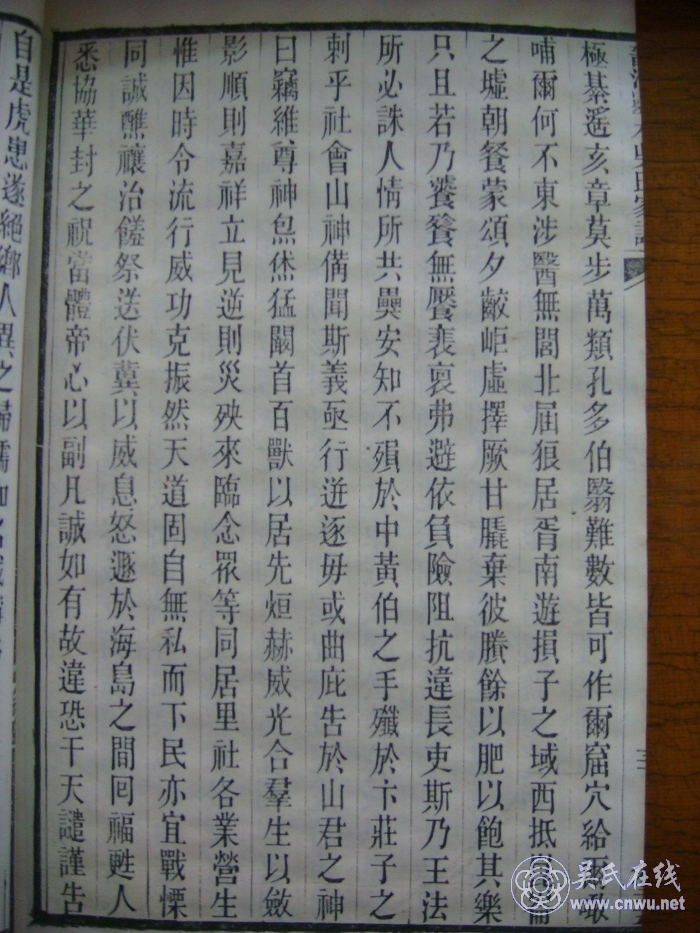 極綦遙亥章莫步萬類孔多伯翳難數皆可作爾窟穴給
哺爾何不東涉醫無閭北屆狼居胥南遊損子之域西抵
之墟朝餐蒙頌夕齩岠虛擇厥甘腝棄彼賸餘以肥以飽其樂
只且若乃饕餮無饜裹裒弗避依負險阻抗違長吏斯乃王法
所必誅人情所共㚃安知不殞於中黃伯之手殲於卞莊子之
刺乎社會山神備聞斯義亟行迸逐毋或曲庇告於山君之神
曰竊維尊神炰烋猛闞首百獸以居先烜赫威光合羣生以斂
影順則嘉祥立見逆則災殃來臨念眾等同居里社各業營生
惟因時令流行威功克振然天道固自無私而下民亦宜戰慄
同誠醮禳治饈祭送伏冀以威息怒遯於海島之間回福甦人
悉協華封之祝當體帝心以副凡誠如有故違恐干天譴謹告
自是虎患遂絕鄉人異之
吳氏家譜
吳氏在线
www.cnwu.net